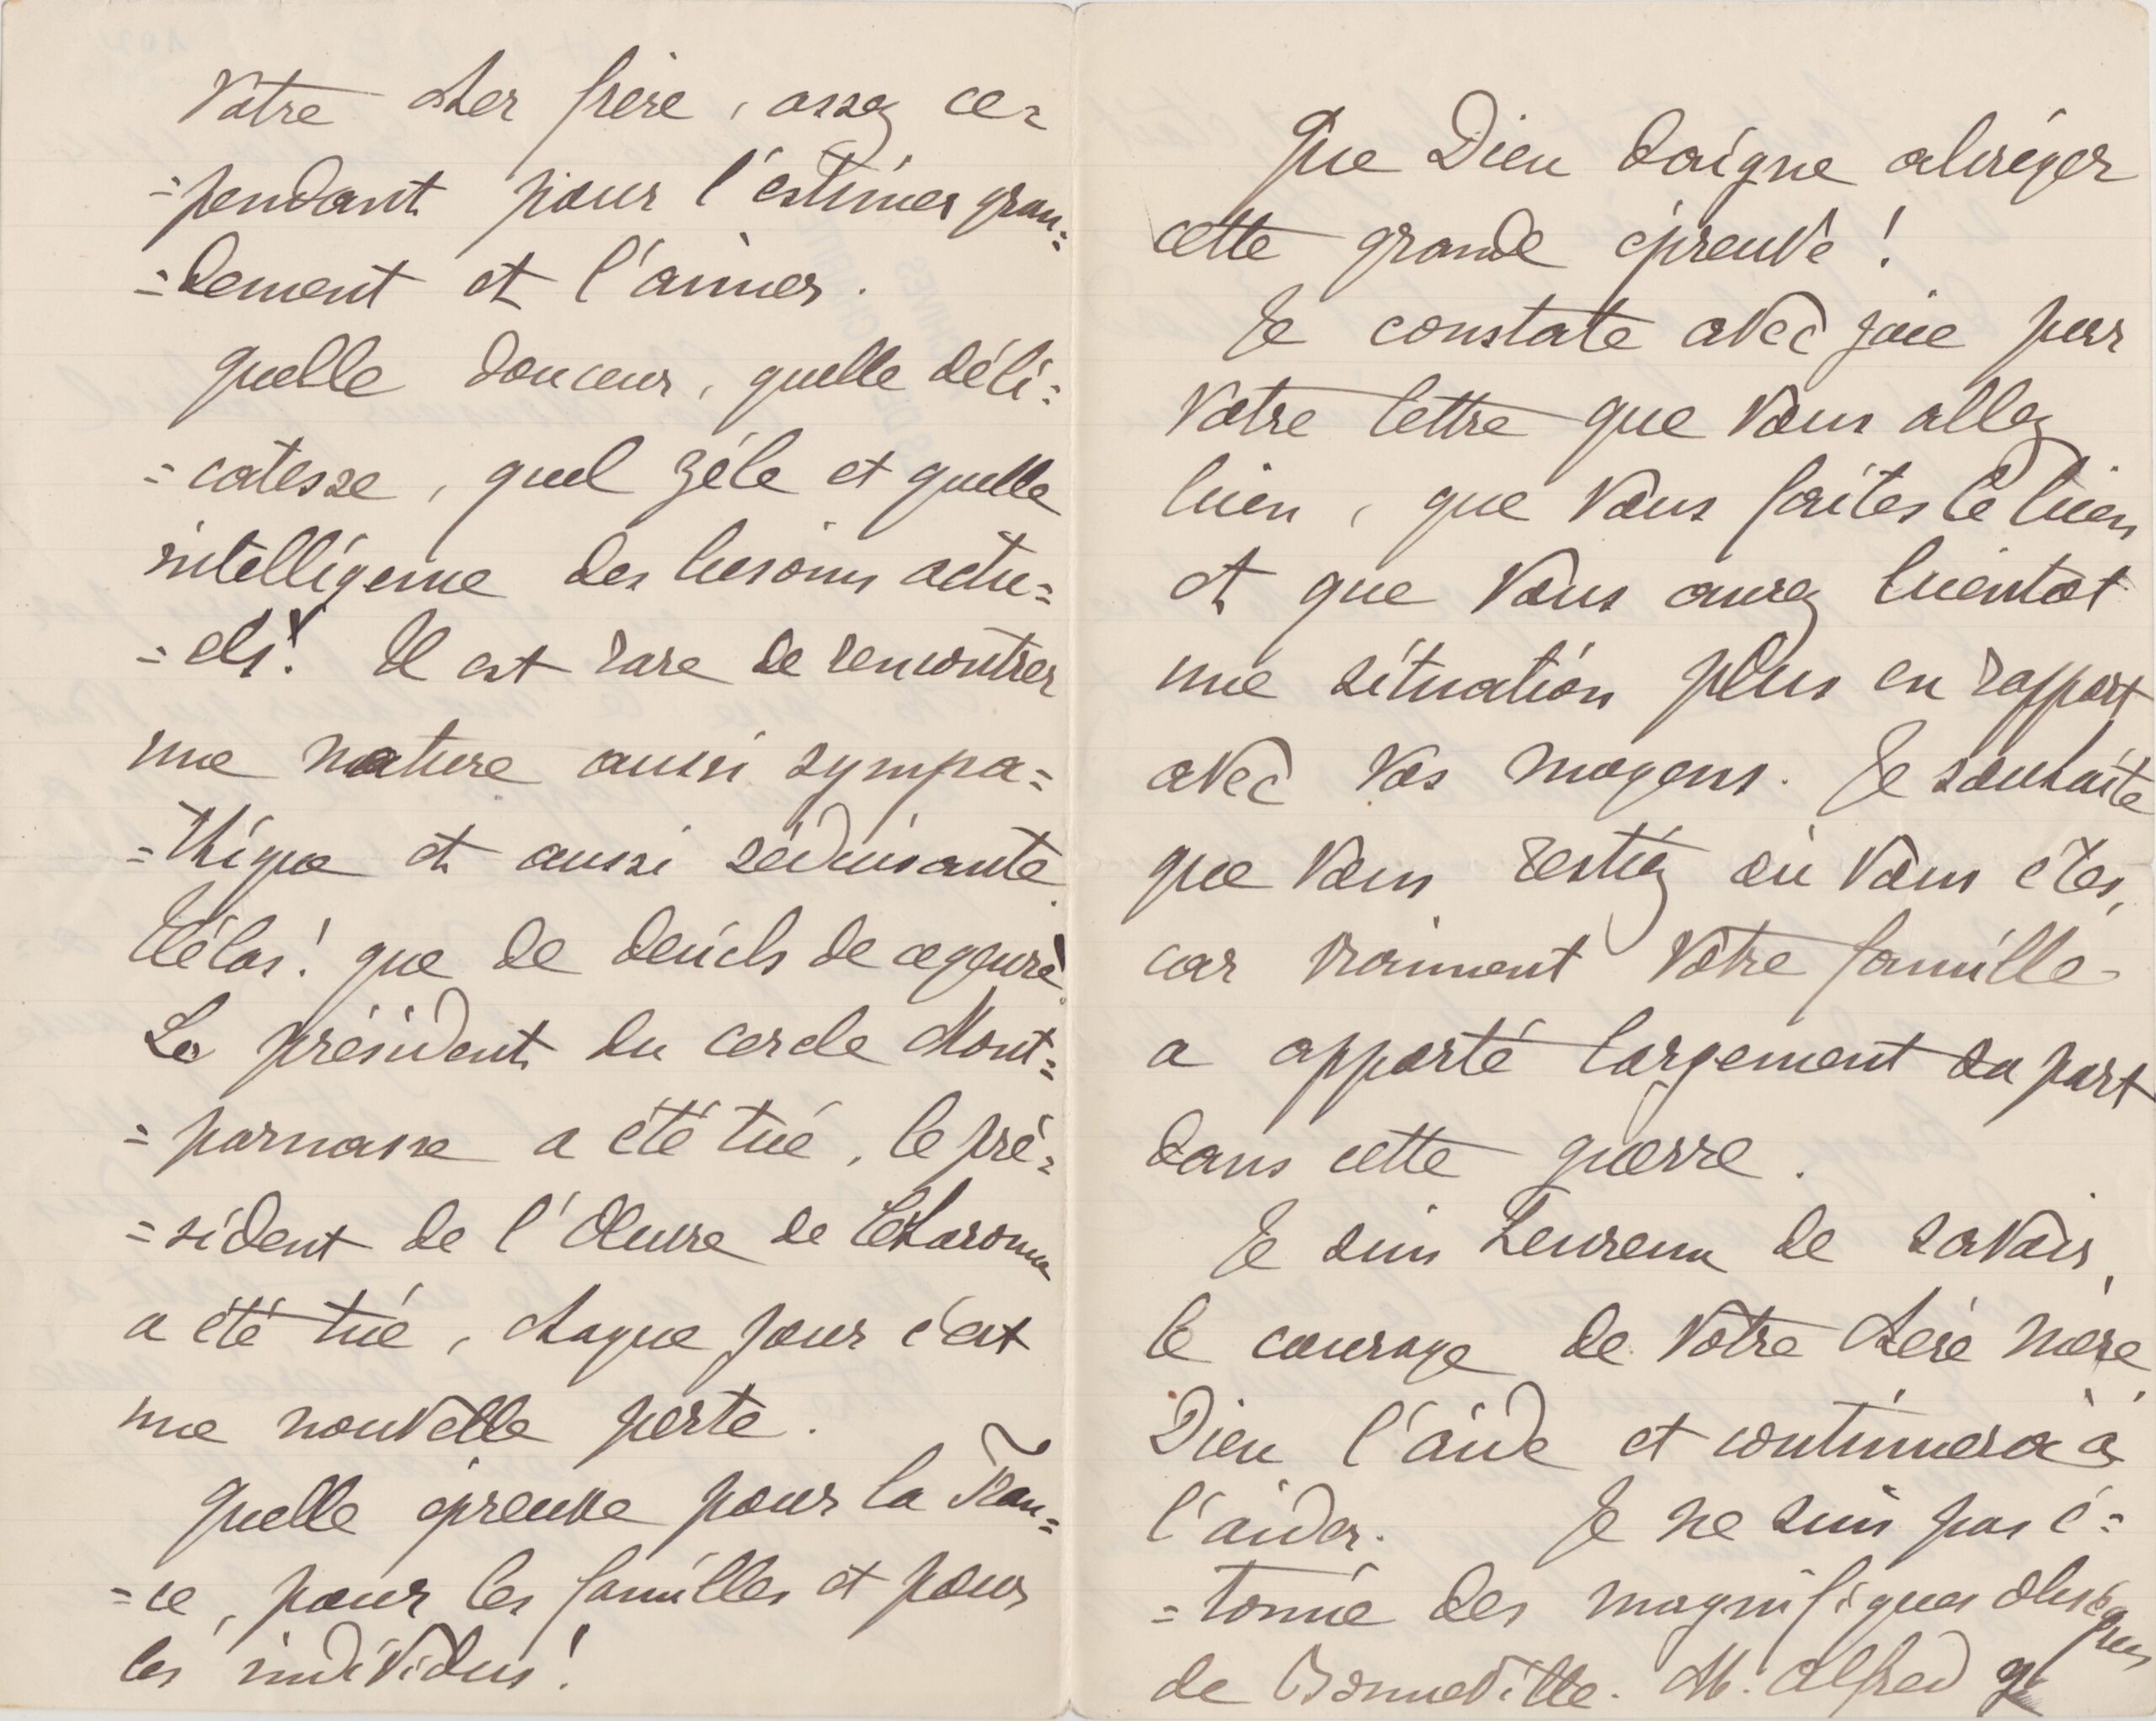 Votre cher frère, assez ce=
=pendant pour l'estimer gran=
=dement et l'aimer.
Quelle douceur, quelle déli=
=catesse, quel zéle et quelle
intelligence des besoins actu=
=els! Il est rare de rencontrer
une nature aussi sympa=
=thique et aussi séduisante.
Hélas! que de deuils de ce genre!
Le président du cercle Mont=
=parnasse a été tué, le pré=
=sident de l'Œuvre de Charonne
a été tué, chaque jour c'est
une nouvelle perte.
Quelle épreuve pour la Fran=
=ce, pour les familles et pour
les individus!
Que Dieu daigne abréger
cette grande épreuve!
Je constate avec joie par
votre lettre que vous allez
bien, que vous faites le bien
et que vous aurez bientot
une situation plus en rapport
avec vos moyens. Je souhaite
que vous restiez où vous êtes,
car vraiment votre famille
a apporté largement sa part
dans cette guerre.
Je suis heureux de savoir
le courage de votre chère mère,
Dieu l'aide et continuera à
l'aider. Je ne suis pas é=
=tonné des magnifiques obsèques
de Bonneville. M. Alfred